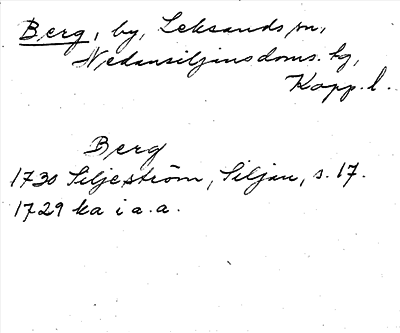 Berg, by, Leksands sn,
Nedansiljans doms. hg,
Kopp. l.
Berg
1730 Siljeström, Siljan, s. 17.
1729 ka i a. a.